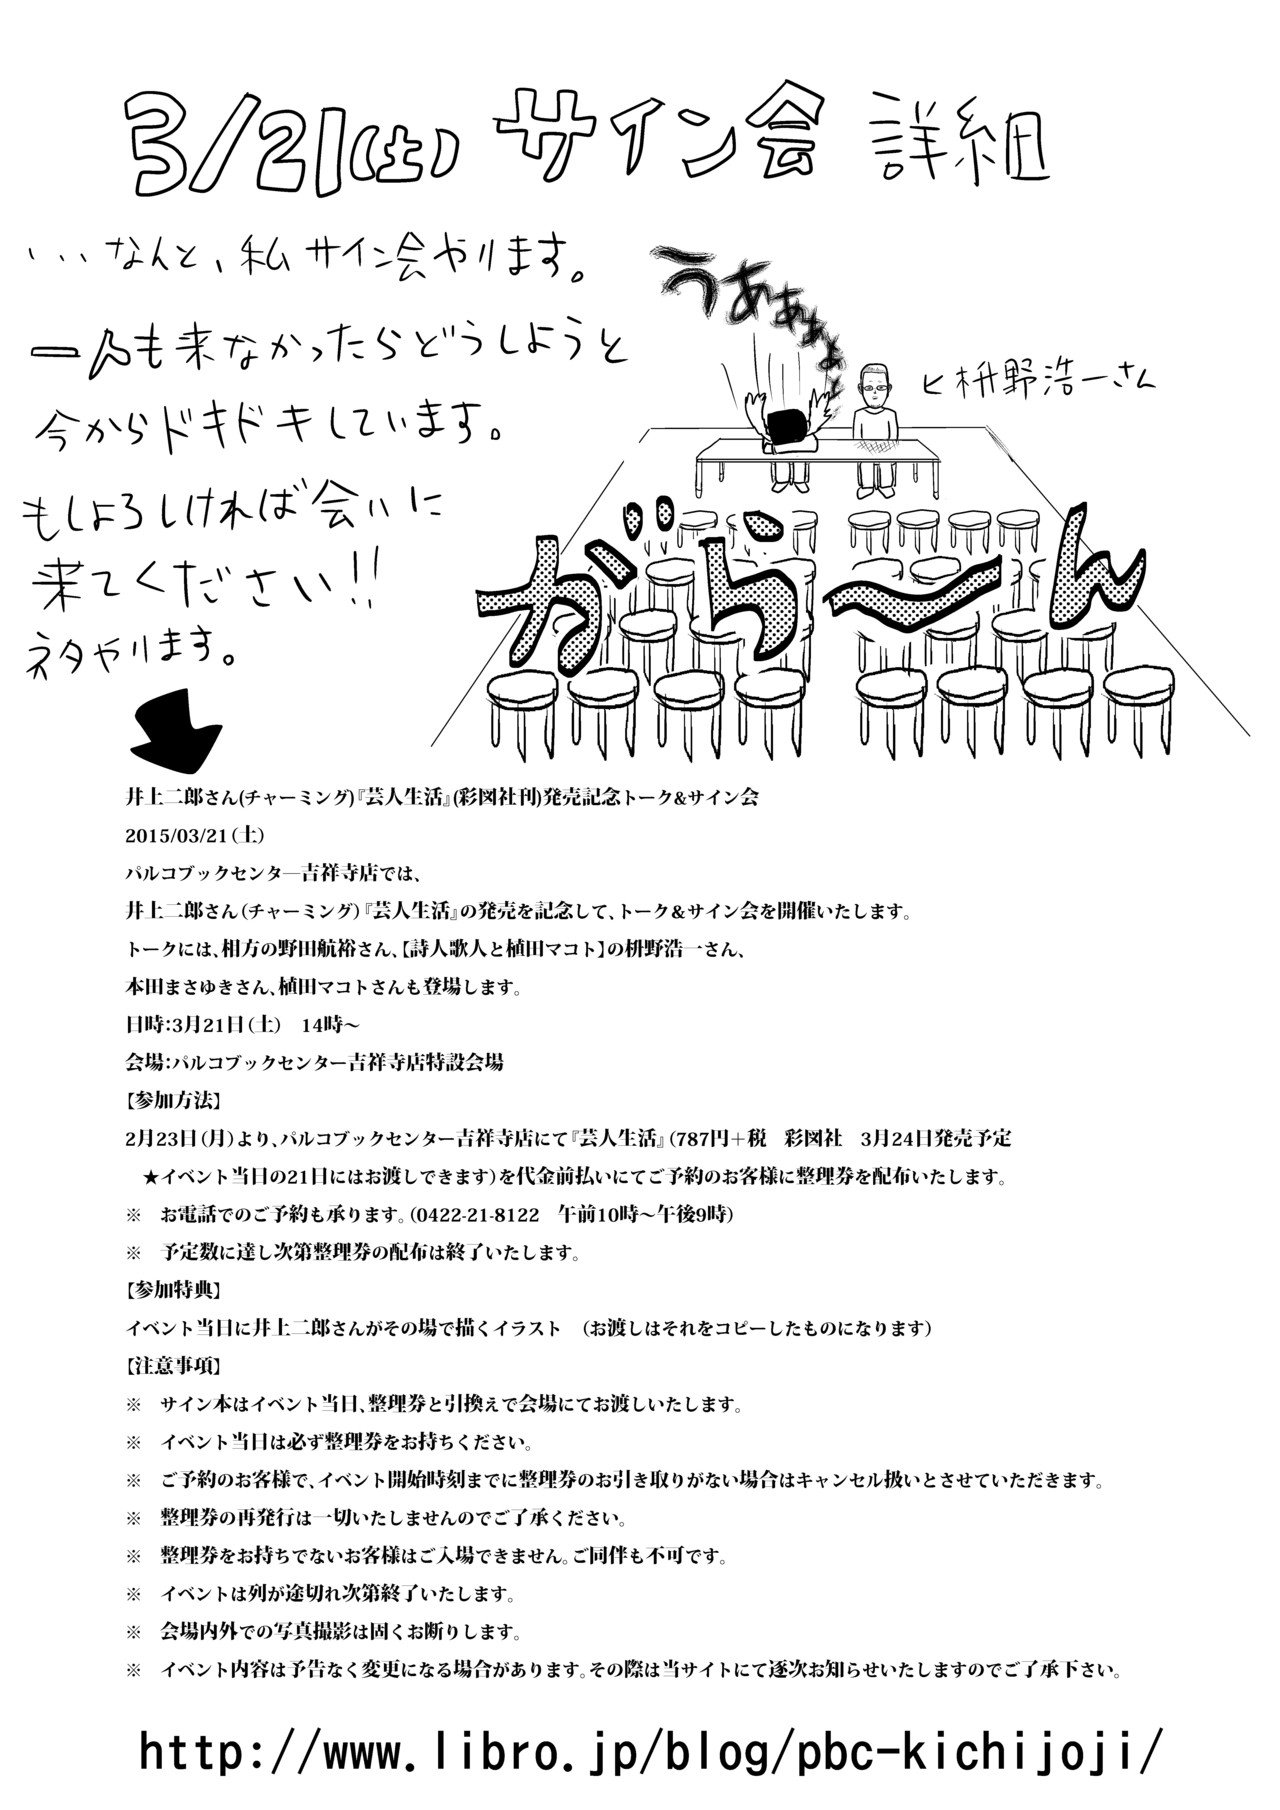 3/21(土) サイン会 詳細
...なんと、私サイン会やります。
一人も来なかったらどうしようと
今からドキドキしています。
もしよろしければ会いに
来てください!!
ネタやります。
うあぁぁぁょ
ヒ枡野浩一さん
がら〜ん
井上二郎さん(チャーミング)『芸人生活』(彩図社刊)発売記念トーク&サイン会
2015/03/21(土)
パルコブックセンター吉祥寺店では、
井上二郎さん(チャーミング)『芸人生活』の発売を記念して、トーク&サイン会を開催いたします。
トークには、相方の野田航裕さん、【詩人歌人と植田マコト】の枡野浩一さん、
本田まさゆきさん、植田マコトさんも登場します。
日時:3月21日(土) 14時〜
会場:パルコブックセンター吉祥寺店特設会場
【参加方法】
2月23日(月)より、パルコブックセンター吉祥寺店にて『芸人生活』(787円+税 彩図社 3月24日発売予定
★イベント当日の21日にはお渡しできます)を代金前払いにてご予約のお客様に整理券を配布いたします。
※ お電話でのご予約も承ります。(0422-21-8122 午前10時〜午後9時)
※ 予定数に達し次第整理券の配布は終了いたします。
【参加特典】
イベント当日に井上二郎さんがその場で描くイラスト (お渡しはそれをコピーしたものになります)
【注意事項】
※ サイン本はイベント当日、整理券と引換えで会場にてお渡しいたします。
※ イベント当日は必ず整理券をお持ちください。
※ ご予約のお客様で、イベント開始時刻までに整理券のお引き取りがない場合はキャンセル扱いとさせていただきます。
※ 整理券の再発行は一切いたしませんのでご了承ください。
※ 整理券をお持ちでないお客様はご入場できません。ご同伴も不可です。
※ イベントは列が途切れ次第終了いたします。
※ 会場内外での写真撮影は固くお断りします。
※ イベント内容は予告なく変更になる場合があります。その際は当サイトにて逐次お知らせいたしますのでご了承下さい。
http://www.libro.jp/blog/pbc-kichijoji/